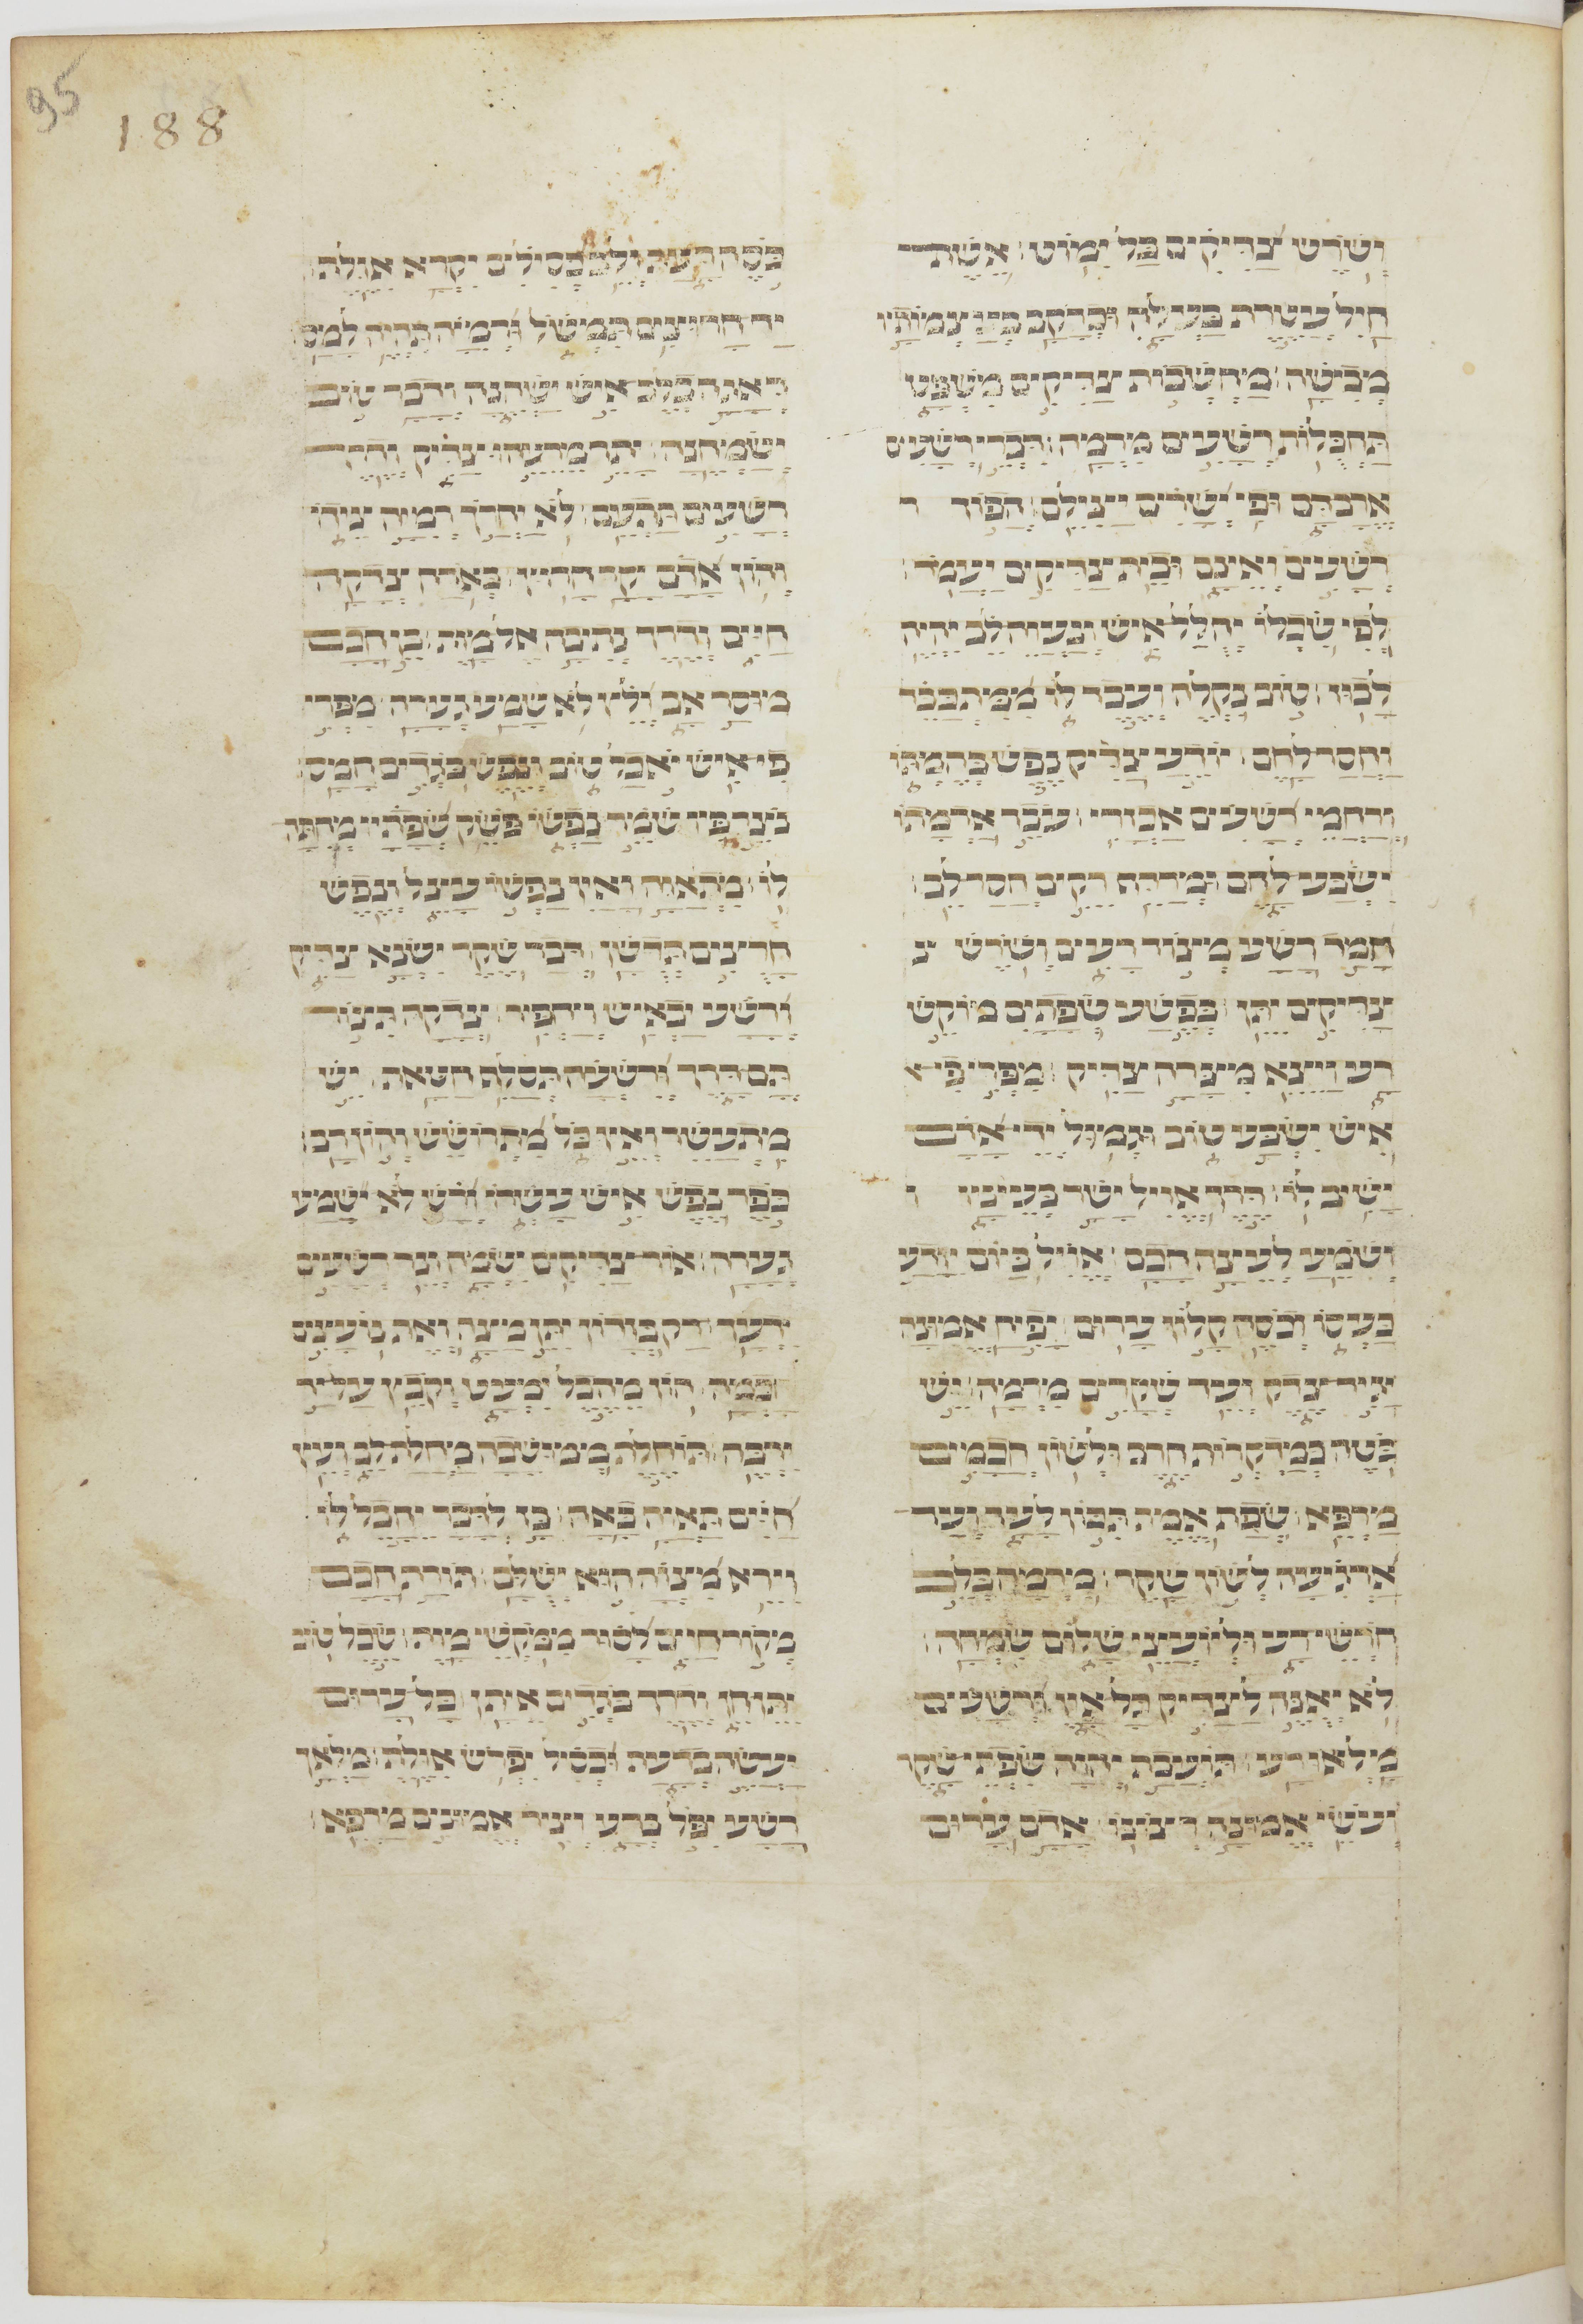 95
188
ושרש צדיקים בל ימוט אשת
חיל עטרת בעלה וכרקב בעצמותיו
מבישה מחשבות צדיקים משפט
תחבלות רשעים מרמה דברי רשעים
ארב דם ופי ישרים יצילם הפוך ר
רשעים ואינם ובית צדיקים יעמד
לפי שכלו יהלל איש ונעוה לב יהיה
לבוז טוב נקלה ועבד לו ממתכבד
וחסר לחם יודע צדיק נפש בהמתו
ורחמי רשעים אכזרי עבד אדמתו
ישבע לחם ומרדף רקים חסר לב
חמד רשע מצוד רעים ושרש צ
צדיקים יתן בפשע שפתים מוקש
רע ויצא מצרה צדיק מפרי פי
איש ישבע טוב וגמול ידי אדם
ישיב לו דרך אויל ישר בעיניו
ושמע לעצה חכם אויל ביום יודע
כעסו וכסה קלון ערום יפיח אמונה
יגיד צדק ועד שקרים מרמה יש
בטה כמדקרות חרב ולשון חכמים
מרפא שפת אמת תכון לעד ועד
ארגיעה לשון שקר מרמה בלב
חרשי רע וליועצי שלום שמחה
לא יאנה לצדיק כל און ורשעים
מלאו רע תועבת יהוה שפתי שקר
ועשי אמונה רצונו אדם ערום
כסה דעת ולב כסילים יקרא אולת
יד חרוצים תמשול ורמיה תהיה למס
דאגה בלב איש ישחנה ודבר טוב
ישמחנה יתר מרעהו צדיק ודרך
רשעים תתעם לא יחרך רמיה צידו
והון אדם יקר חרוץ בארח צדקה
חיים ודרך נתיבה אל מות בן חכם
מוסר אב ולץ לא שמע גערה מפרי
פי איש יאכל טוב ונפש בגדים חמס
נצר פיו שמר נפשו פשק שפתיו מחתה
לו מתאוה ואין נפשו עצל ונפש
חרצים תדשן דבר שקר ישנא צדיק
ורשע יבאיש ויחפיר צדקה תצור
תם דרך ורשעה תסלף חטאת יש
מתעשר ואין כל מתרושש והון רב
כפר נפש איש עשרו ורש לא שמע
גערה אור צדיקים ישמח ונר רשעים
ידעך רק בזדון יתן מצה ואת נועצים
חכמה הון מהבל ימעט וקבץ על יד
ירבה תוחלת ממושכה מחלה לב ועץ
חיים תאוה באה בז לדבר יחבל לו
וירא מצוה הוא ישלם תורת חכם
מקור חיים לסור ממקשי מות שכל טוב
יתן חן ודרך בגדים איתן כל ערום
יעשה בדעת וכסיל יפרש אולת מלאך
רשע יפל ברע וציר אמונים מרפא